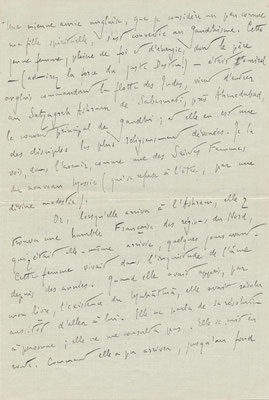 Une mienne amie anglaise, que je considère un peu comme
ma fille spirituelle, s'est convertie au gandhisme. Cette
jeune femme, pleine de foi et d'énergie, dont le père
— (admirez la force du juste Destin) — était l'Amiral
anglais commandant la flotte des Indes, vient d'entrer
au Satyagrah Ashram de Sabarmati, près Ahmedabad,
le couvent principal de Gandhi ; et elle en est une
des disciples les plus religieusement dévouées. Je la
vois, sous l'aspect, comme une des Saintes Femmes
du nouveau Messie (qui se refuse à l'être, par une
divine modestie).
Or, lorsqu'elle arriva à l'Ashram, elle y
trouva une humble Française des régions du Nord,
qui était elle-même arrivée, quelques jours avant
Cette femme vivait dans l'inquiétude de l'âme
depuis des années. Quand elle avait appris, par
mon livre, l'existence du Mahâtmâ, elle avait résolu
aussitôt d'aller à lui. Elle ne parla de sa résolution
à personne ; elle ne me consulta pas. Elle se mit en
route. Comment elle a pu arriver, jusqu'au fond